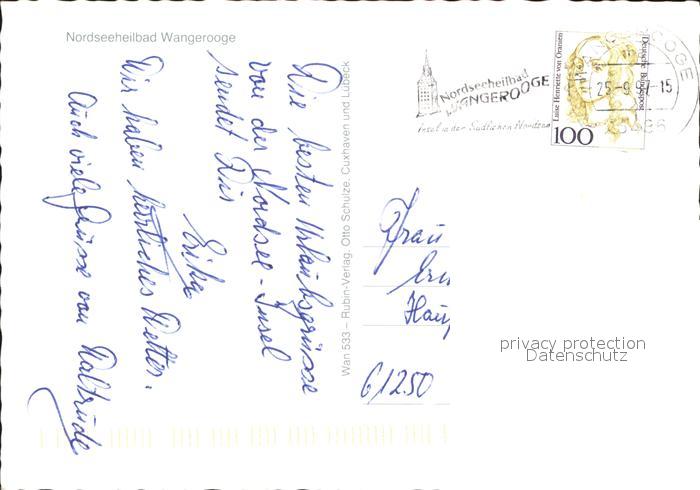 Nordseeheilbad Wangerooge
Die besten Urlaubsgrüsse
von der Nordsee-Insel
sendet Dir
Erika
Wir haben herrliches Wetter.
Auch viele Grüsse von Waltrude
Wan 533 – Rubin-Verlag, Otto Schulze, Cuxhaven und Lübeck
Nordseeheilbad
WANGEROOGE
Insel in der Südlichen Nordsee
Luise Henriette von Oranien
Deutsche Bundespost
100
WANGEROOGE
-15
Frau
61250
privacy protection
Datenschutz